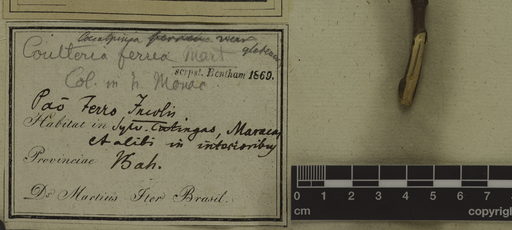 Caesalpinia ferrea var glabrescens
Coulteria ferrea Mart
scrpst. Bentham 1869.
Col. in h. Monac
Pao Ferro Incolis
Habitat in Sylv. Catingas, Maracas
et alibi in interioribus
Provinciae Bah.
Dr Martius Iter Brasil.
0 1 2 3 4 5 6 7
cm
copyrigh